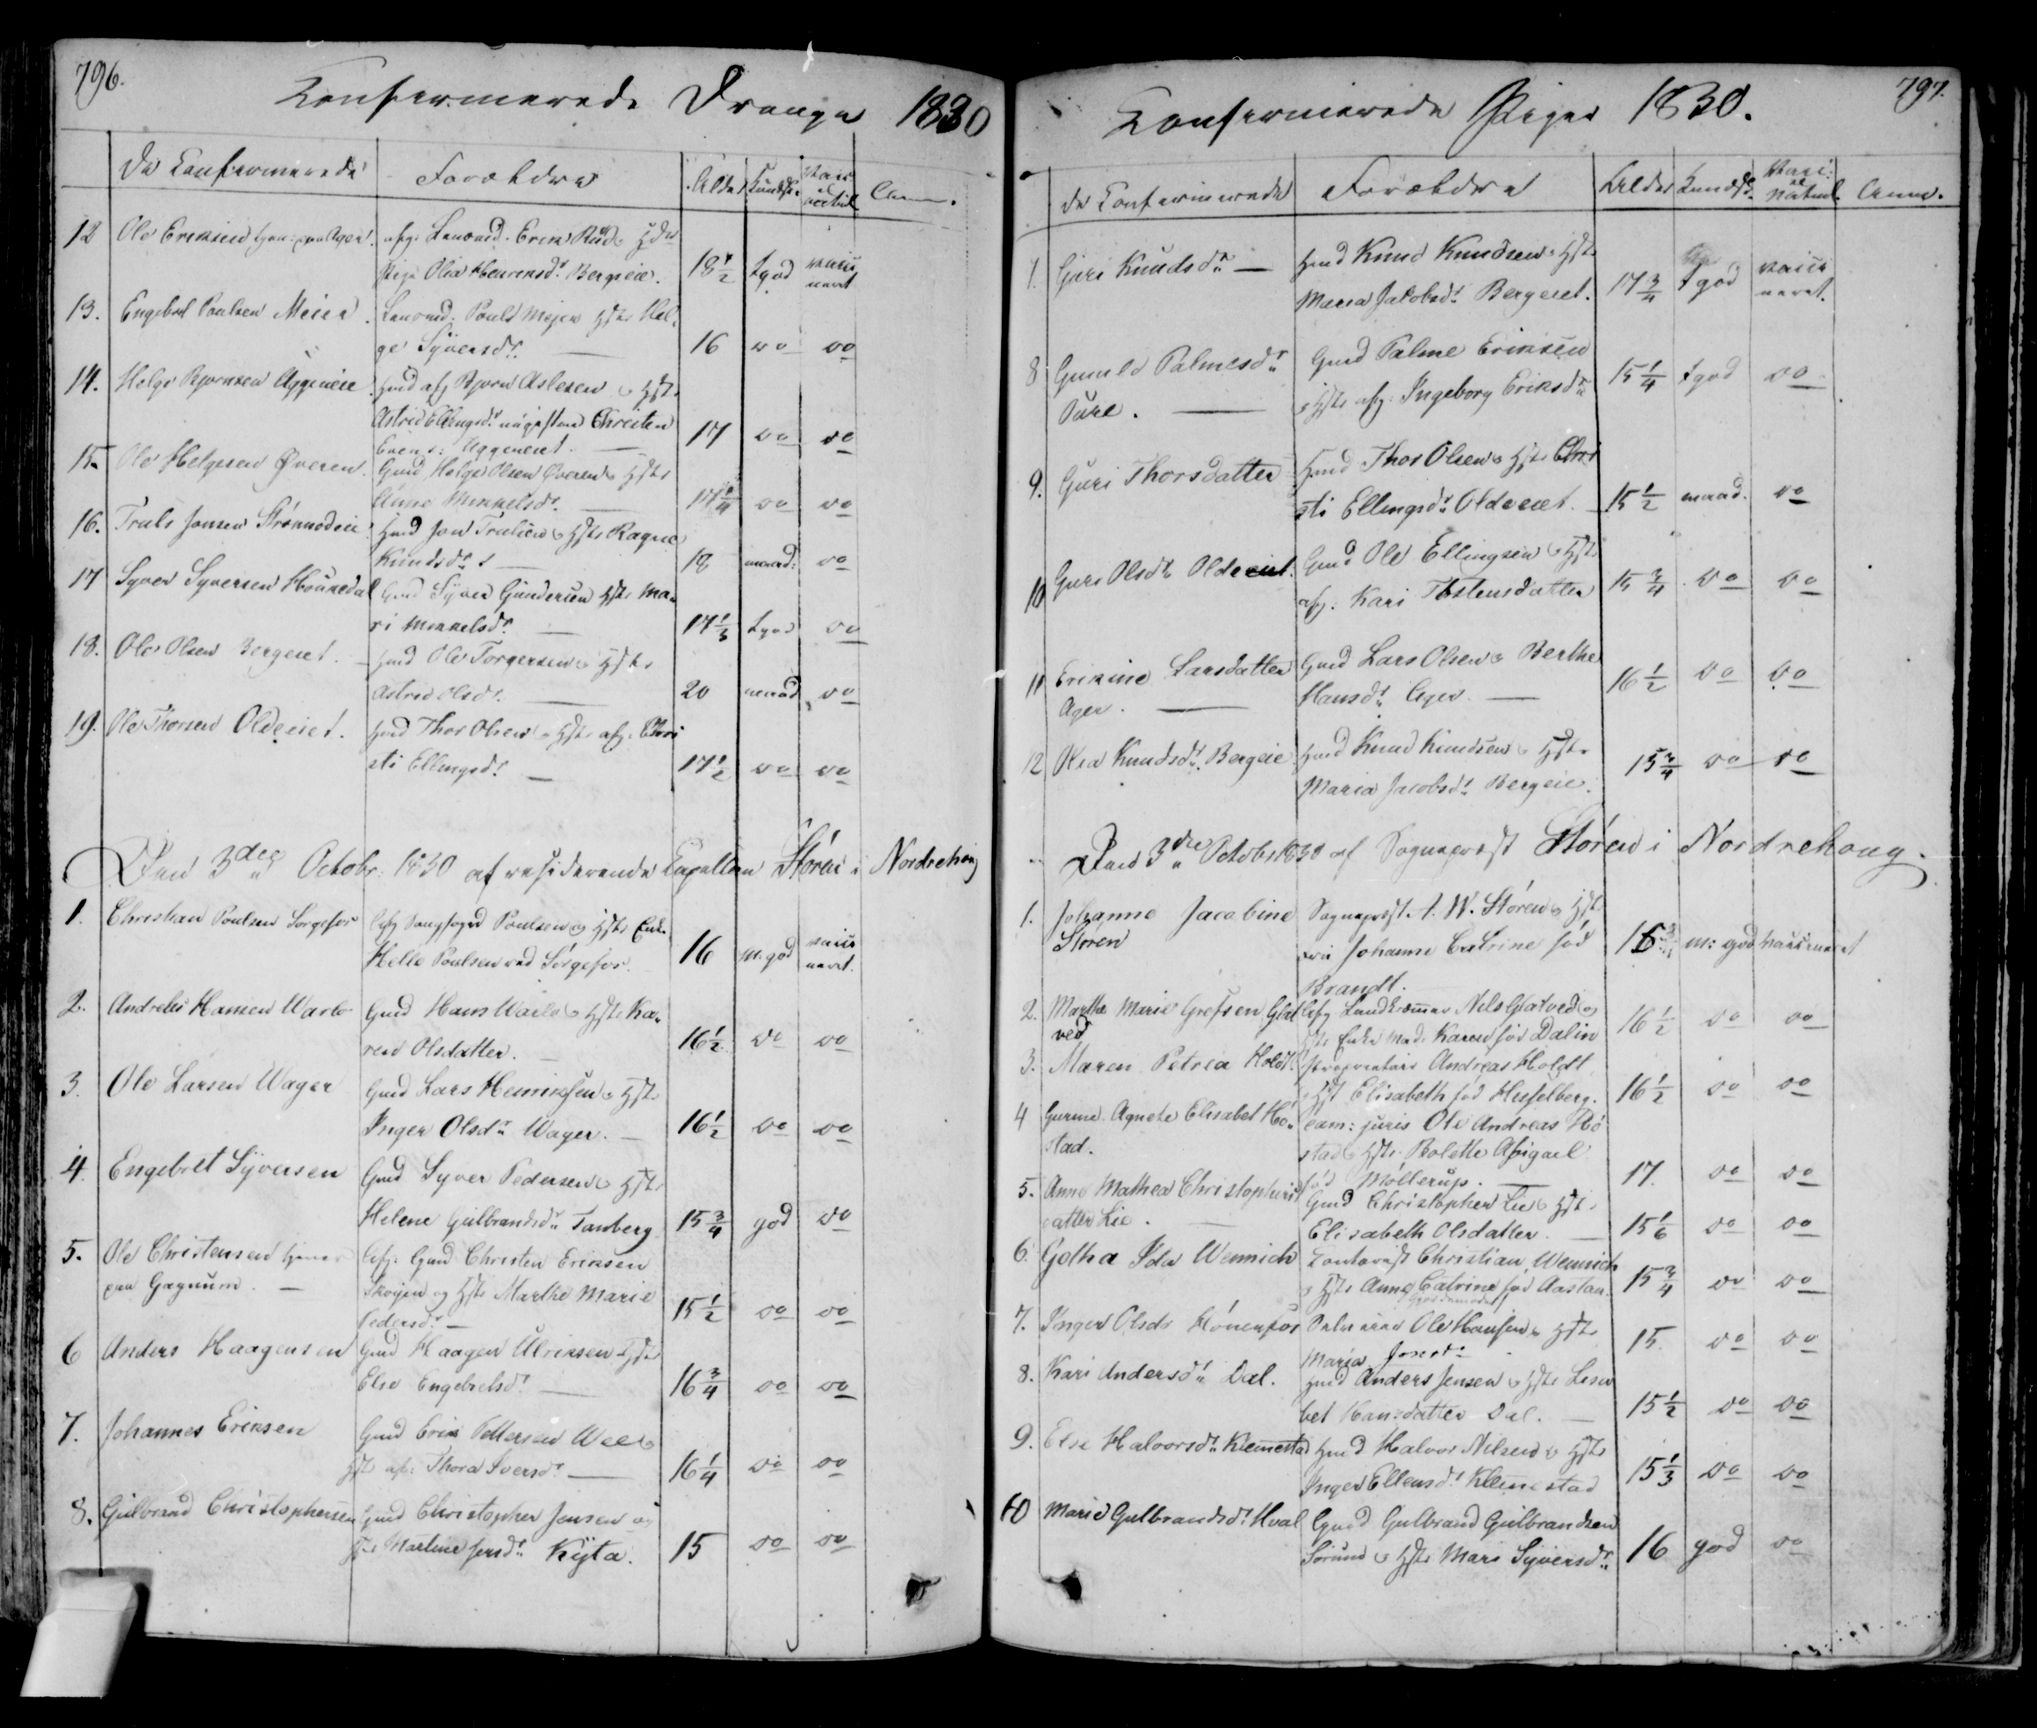 796.
Confirmerede Drenge 1830
De Confirmerede Forældre Alder Kundsk. Vacc. el. natul. Anm.
12 Ole Eriksen afg. Landv. Erik Rud
Pige Olia Henriksd. Bergeie. 18 1/2 tgod vacci
neret
13. Engebret Poulsen Meier. Landvd. Pouls Mejer Hstr Hel
ge Syversdr. — 16 do do
14. Helge Bjørnsen Aggeneie Hmd afg Bjørn Aslesen og Hstr
Astrid Ellingsdr nu gift med Christen
Evens: Aggeneiet. — 17 do do
15. Ole Helgesen Øveren. Gmd Helge Olsen Øveren og Hstr
Anne Mikkelsdr. — 17 1/4 do do
16. Truls Jonsen Strømsodeie Hmd Jon Trulsen og Hstr Ragne
Knudsdr. — 18 maad: do
17 Syver Syversen Houredal Gmd Syver Gundersen Hstr Ma
ri Mikkelsdr. — 17 1/3 tgod do
18. Ole Olsen Bergeiet. Hmd Ole Torgersen og Hstr
Astrid Olsdr. — 20 maad do
19. Ole Thorsen Oldeeiet. Hmd Thor Olsen og Hstr afg. Chri
sti Ellingsdr. — 17 1/2 do do
Den 3die Octobr. 1830 af residerende Capellan Støren i Nordrehoug
1. Christian Poulsen Sørgefos Afg Sangfoged Poulsen og Hstr Enke
Helle Poulsen ved Sørgefos. 16 m. god vacci
neret.
2. Andreas Hansen Warlo Gmd Hans Warlo og Hstr Ka
ren Olsdatter. — 16 1/2 do do
3. Ole Larsen Wager Gmd Lars Henriksen og Hstr
Inger Olsdr Wager. — 16 1/2 do do
4. Engebret Syversen Gmd Syver Pedersen og Hstr
Helene Gulbrandsdr Tanberg 15 3/4 god do
5. Ole Christensen tjener Afg. Gmd Christen Eriksen
paa Gagnum. — Skoyen og Hstr Marthe Marie
Pedersdr — 15 1/2 do do
6 Anders Haagensen Gmd Haagen Ulriksen og Hstr
Else Engebretsdr. — 16 3/4 do do
7. Johannes Eriksen Gmd Erik Pettersen Wee og
Hstr afg. Thora Iversdr. — 16 1/4 do do
8. Gulbrand Christophersen Gmd Christopher Jensen og
Hstr Martine Jensdr Kyta. 15 do do
797.
Confirmerede Piger 1830.
De Confirmerede Forældre Alder Kundsk. Vacc: el. Natul. Anm.
7. Guri Knudsdr — Hmd Knud Knudsen og Hstr
Maria Jakobsdr Bergeiet. 17 3/4 tgod vacci
neret.
8 Gunild Palmesdr Gmd Palme Eriksen
Pure. — og Hstr afg. Ingeborg Eriksdr 15 1/4 tgod do
9. Guri Thorsdatter Hmd Thor Olsen og Hstr Chri
sti Ellingsdr Oldeeiet. 15 1/2 maad. do
10 Guri Olsdr Oldeeiet. Gmd Ole Ellingsen og Hstr
afg. Kari Thostensdatter 15 3/4 do do
11 Erikine Larsdatter Gmd Lars Olsen og Berthe
Ager. — Hansdr Ager. — 16 1/2 do do
12 Kia Knudsdr Bergeie Hmd Knud Knudsen og Hstr
Maria Jacobsdr Bergeie. 15 3/4 do do
Den 3die Octobr 1830 af Sognepræst Støren i Nordrehoug.
1. Johanne Jacobine Sognepræst A. W. Støren og Hstr
Støren Fru Johanne Catrine fød
Brandt. — 15 3/4 m: god vaccineret
2. Marthe Marie Grefsen Glat Afg Landkræmmer Nils Glatved og
ved Hstr Enke Mad. Karen fød Dalin 16 1/2 do do
3. Maren Petrea Holdt. Proprietair Andreas Holdt
og Hst Elisabeth fød Hesselberg. 16 1/2 do do
4 Gurine Agnete Elisabet Hø Exam: juris Ole Andreas Hø
stad. stad og Hstr Bolette Abigael
fød Møllerup. — 17. do do
5. Anne Mathea Christophers Gmd Christopher Lie og Hstr
datter Lie. — Elisabeth Olsdatter. — 15 1/6 do do
6. Gotha Ida Wennich Contorist Christian Wennich
og Hstr Anne Catrine fød Aastan. 15 3/4 do do
7. Inger Olsdr Hønenfos Ole Hansen og Hstr
Maria Jonsdr 15. do do
8. Kari Andersdr Dal. Hmd Anders Jensen og Hstr Lisa
bet Hansdatter Dal. — 15 1/2 do do
9. Else Halvorsdr Klemestad Hmd Halvor Nilsen og Hstr
Inger Ellensdr Klemestad 15 1/3 do do
10 Marie Gulbrandsdr Hval Gmd Gulbrand Gulbrandsen
Sørum og Hstr Mari Syversdr 16 god do